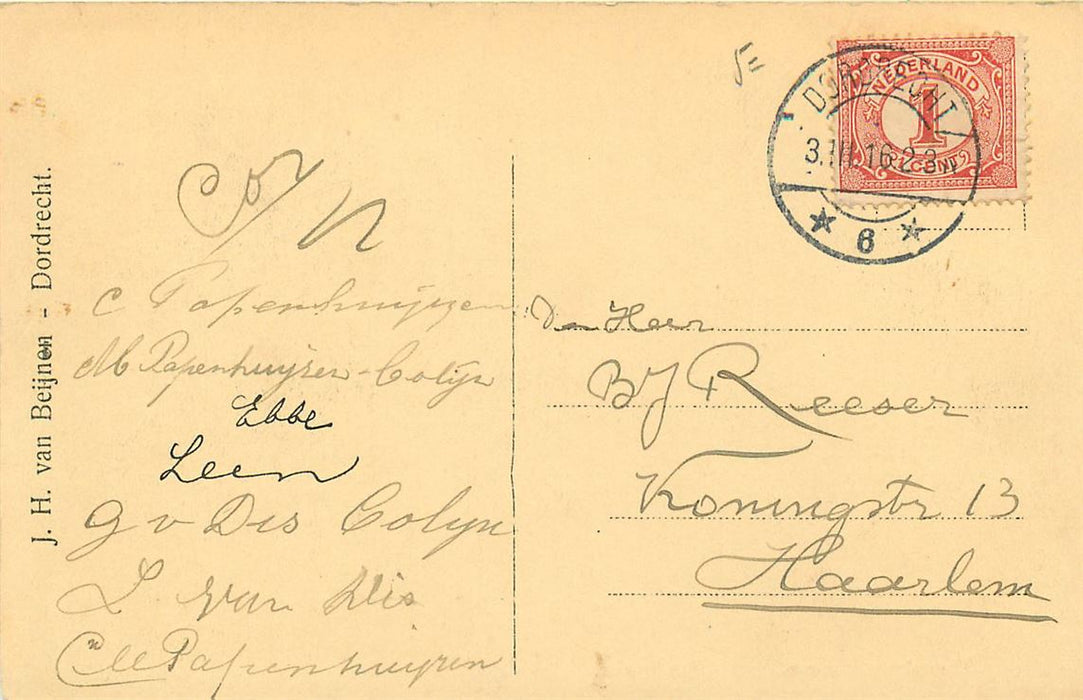 J. H. van Beijnen - Dordrecht.
C Papenhuijzen
M Papenhuijsen-Colijn
Ebbe
Leen
G v Dis Colijn
L. van Dis
Papenhuijzen
DORDRECHT
3.III.16 2-3
6
NEDERLAND
1
CENT
Den Heer
BJ Reeser
Koningstr 13
Haarlem